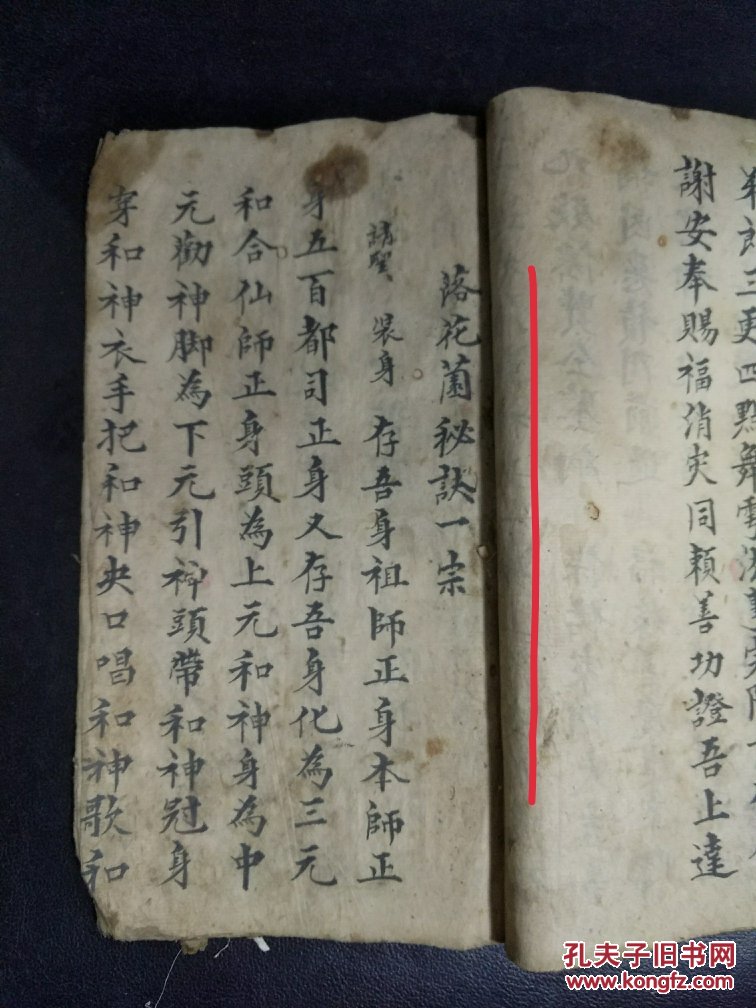 謝安奉賜福消灾同賴善功證吾上達
落花薗秘訣一宗
請聖 裝身 存吾身祖師正身本師正
身五百都司正身又存吾身化為三元
和合仙師正身頭為上元和神身為中
元勸神脚為下元引神頭帶和神冠身
穿和神衣手把和神央口唱和神歌和
孔夫子旧书网
www.kongfz.com